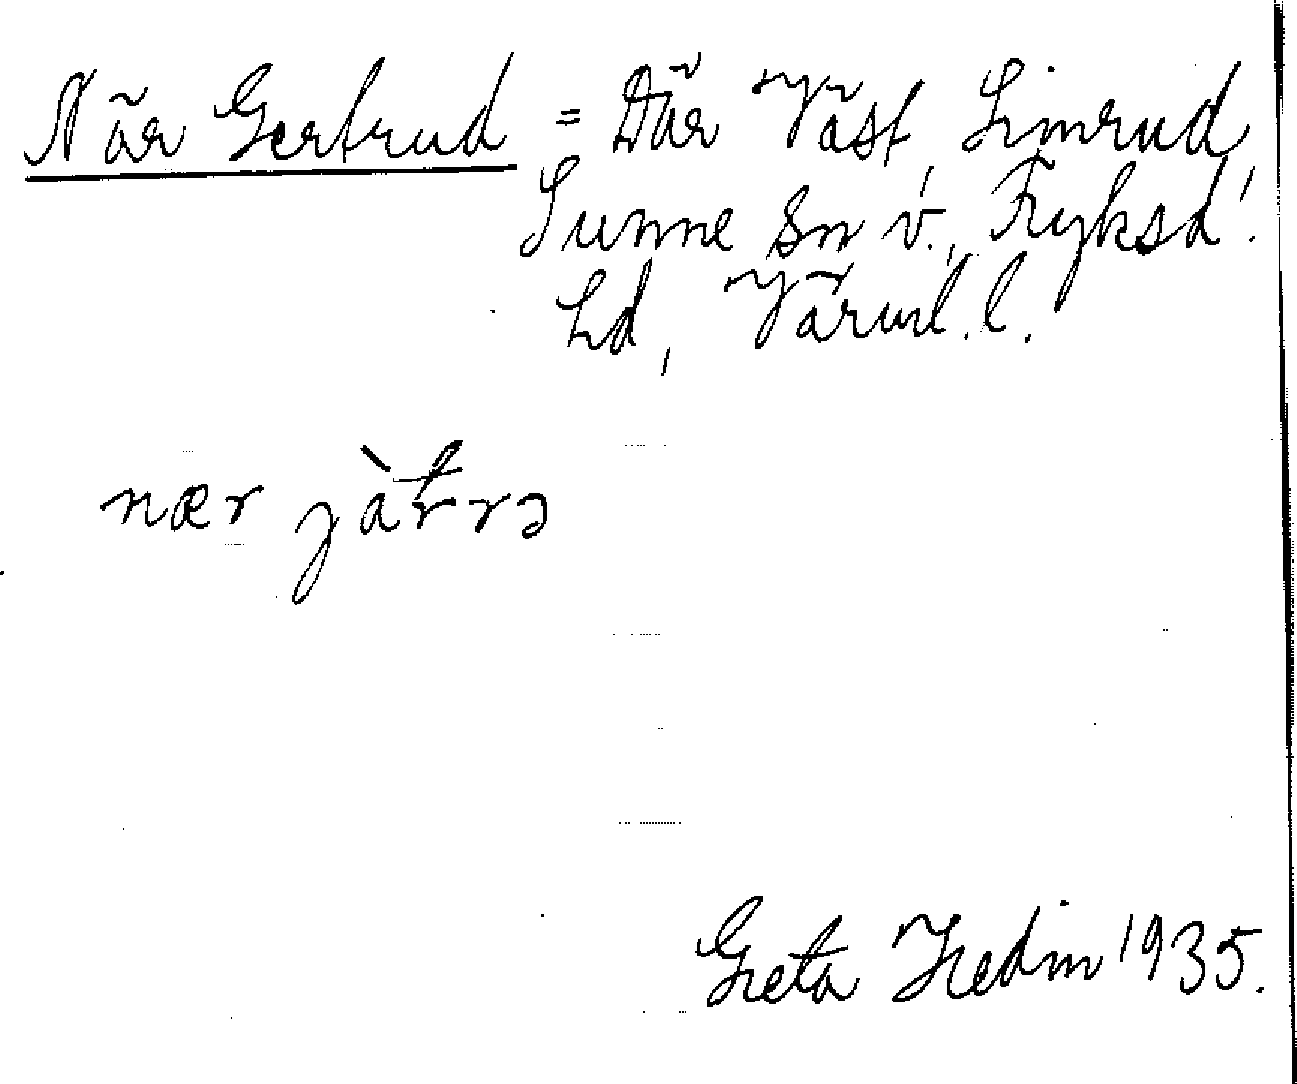 När Gertrud = Där Väst, Limrud,
Sunne sn v., Fryksd.
hd, Värml. l.
nær jàtrə
Greta Hedin 1935.